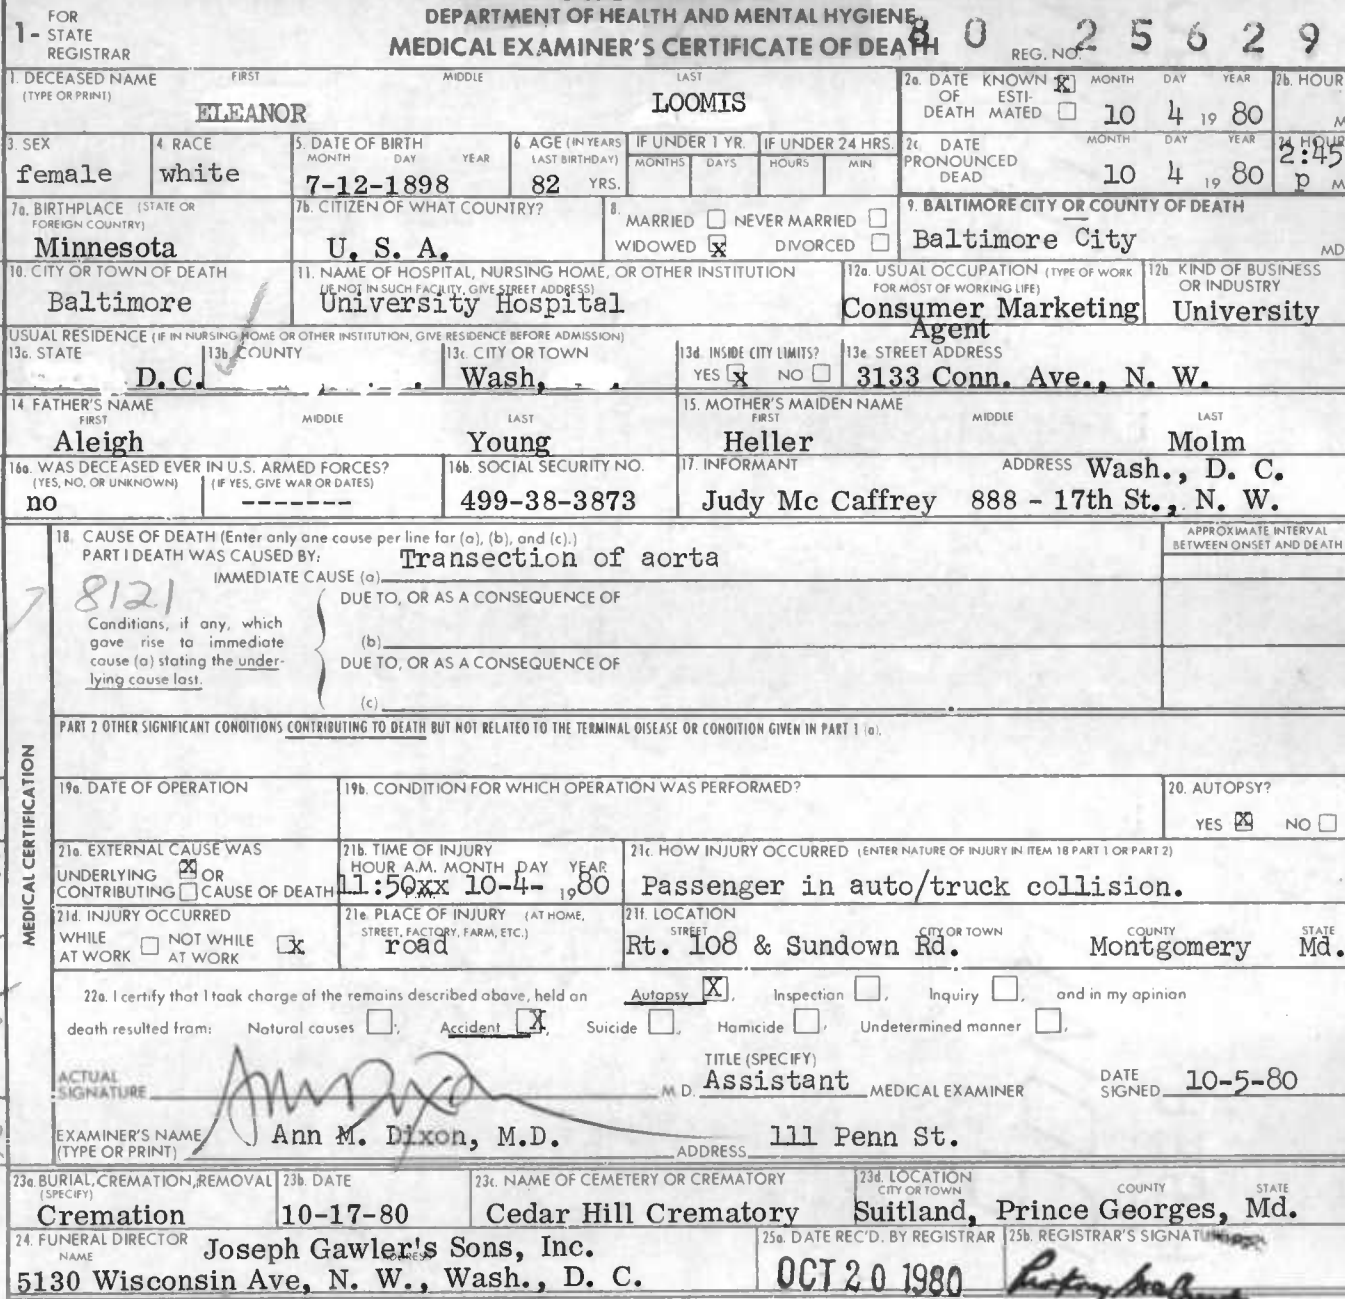 DEPARTMENT OF HEALTH AND MENTAL HYGIENE
1 - FOR STATE REGISTRAR
MEDICAL EXAMINER'S CERTIFICATE OF DEATH
REG. NO. 80 25629
1. DECEASED NAME (TYPE OR PRINT) FIRST MIDDLE LAST
ELEANOR LOOMIS
2a. DATE OF DEATH KNOWN X ESTIMATED MONTH DAY YEAR 2b. HOUR
10 4 19 80 M
3. SEX female
4. RACE white
5. DATE OF BIRTH MONTH DAY YEAR
7-12-1898
6. AGE (IN YEARS LAST BIRTHDAY) 82 YRS.
IF UNDER 1 YR. MONTHS DAYS
IF UNDER 24 HRS. HOURS MIN
2c. DATE PRONOUNCED DEAD MONTH DAY YEAR
10 4 19 80
2d. HOUR 2:45 p M
7a. BIRTHPLACE (STATE OR FOREIGN COUNTRY)
Minnesota
7b. CITIZEN OF WHAT COUNTRY?
U. S. A.
8. MARRIED NEVER MARRIED
WIDOWED X DIVORCED
9. BALTIMORE CITY OR COUNTY OF DEATH
Baltimore City MD
10. CITY OR TOWN OF DEATH
Baltimore
11. NAME OF HOSPITAL, NURSING HOME, OR OTHER INSTITUTION
(IF NOT IN SUCH FACILITY, GIVE STREET ADDRESS)
University Hospital
12a. USUAL OCCUPATION (TYPE OF WORK FOR MOST OF WORKING LIFE)
Consumer Marketing Agent
12b. KIND OF BUSINESS OR INDUSTRY
University
USUAL RESIDENCE (IF IN NURSING HOME OR OTHER INSTITUTION, GIVE RESIDENCE BEFORE ADMISSION)
13a. STATE D.C.
13b. COUNTY
13c. CITY OR TOWN Wash,
13d. INSIDE CITY LIMITS? YES X NO
13e. STREET ADDRESS
3133 Conn. Ave., N. W.
14. FATHER'S NAME FIRST MIDDLE LAST
Aleigh Young
15. MOTHER'S MAIDEN NAME FIRST MIDDLE LAST
Heller Molm
16a. WAS DECEASED EVER IN U.S. ARMED FORCES?
(YES, NO, OR UNKNOWN) (IF YES, GIVE WAR OR DATES)
no -------
16b. SOCIAL SECURITY NO.
499-38-3873
17. INFORMANT ADDRESS Wash., D. C.
Judy Mc Caffrey 888 - 17th St., N. W.
MEDICAL CERTIFICATION
18. CAUSE OF DEATH (Enter only one cause per line for (a), (b), and (c).)
APPROXIMATE INTERVAL BETWEEN ONSET AND DEATH
PART I DEATH WAS CAUSED BY:
IMMEDIATE CAUSE (a) Transection of aorta
8121
DUE TO, OR AS A CONSEQUENCE OF
Conditions, if any, which gave rise to immediate cause (a) stating the underlying cause last.
(b)
DUE TO, OR AS A CONSEQUENCE OF
(c)
PART 2 OTHER SIGNIFICANT CONDITIONS CONTRIBUTING TO DEATH BUT NOT RELATED TO THE TERMINAL DISEASE OR CONDITION GIVEN IN PART 1 (a).
19a. DATE OF OPERATION
19b. CONDITION FOR WHICH OPERATION WAS PERFORMED?
20. AUTOPSY?
YES X NO
21a. EXTERNAL CAUSE WAS
UNDERLYING X OR
CONTRIBUTING CAUSE OF DEATH
21b. TIME OF INJURY
HOUR A.M. MONTH DAY YEAR
11:50xx 10-4- 1980
21c. HOW INJURY OCCURRED (ENTER NATURE OF INJURY IN ITEM 18 PART 1 OR PART 2)
Passenger in auto/truck collision.
21d. INJURY OCCURRED
WHILE AT WORK NOT WHILE AT WORK x
21e. PLACE OF INJURY (AT HOME, STREET, FACTORY, FARM, ETC.)
road
21f. LOCATION STREET CITY OR TOWN COUNTY STATE
Rt. 108 & Sundown Rd. Montgomery Md.
22a. I certify that I took charge of the remains described above, held an Autopsy X, Inspection, Inquiry, and in my opinion
death resulted from: Natural causes, Accident X, Suicide, Homicide, Undetermined manner,
ACTUAL SIGNATURE Ann Dixon M.D.
TITLE (SPECIFY) Assistant MEDICAL EXAMINER
DATE SIGNED 10-5-80
EXAMINER'S NAME (TYPE OR PRINT) Ann M. Dixon, M.D.
ADDRESS 111 Penn St.
23a. BURIAL, CREMATION, REMOVAL (SPECIFY)
Cremation
23b. DATE
10-17-80
23c. NAME OF CEMETERY OR CREMATORY
Cedar Hill Crematory
23d. LOCATION CITY OR TOWN COUNTY STATE
Suitland, Prince Georges, Md.
24. FUNERAL DIRECTOR NAME ADDRESS
Joseph Gawler's Sons, Inc.
5130 Wisconsin Ave, N. W., Wash., D. C.
25a. DATE REC'D. BY REGISTRAR
OCT 20 1980
25b. REGISTRAR'S SIGNATURE